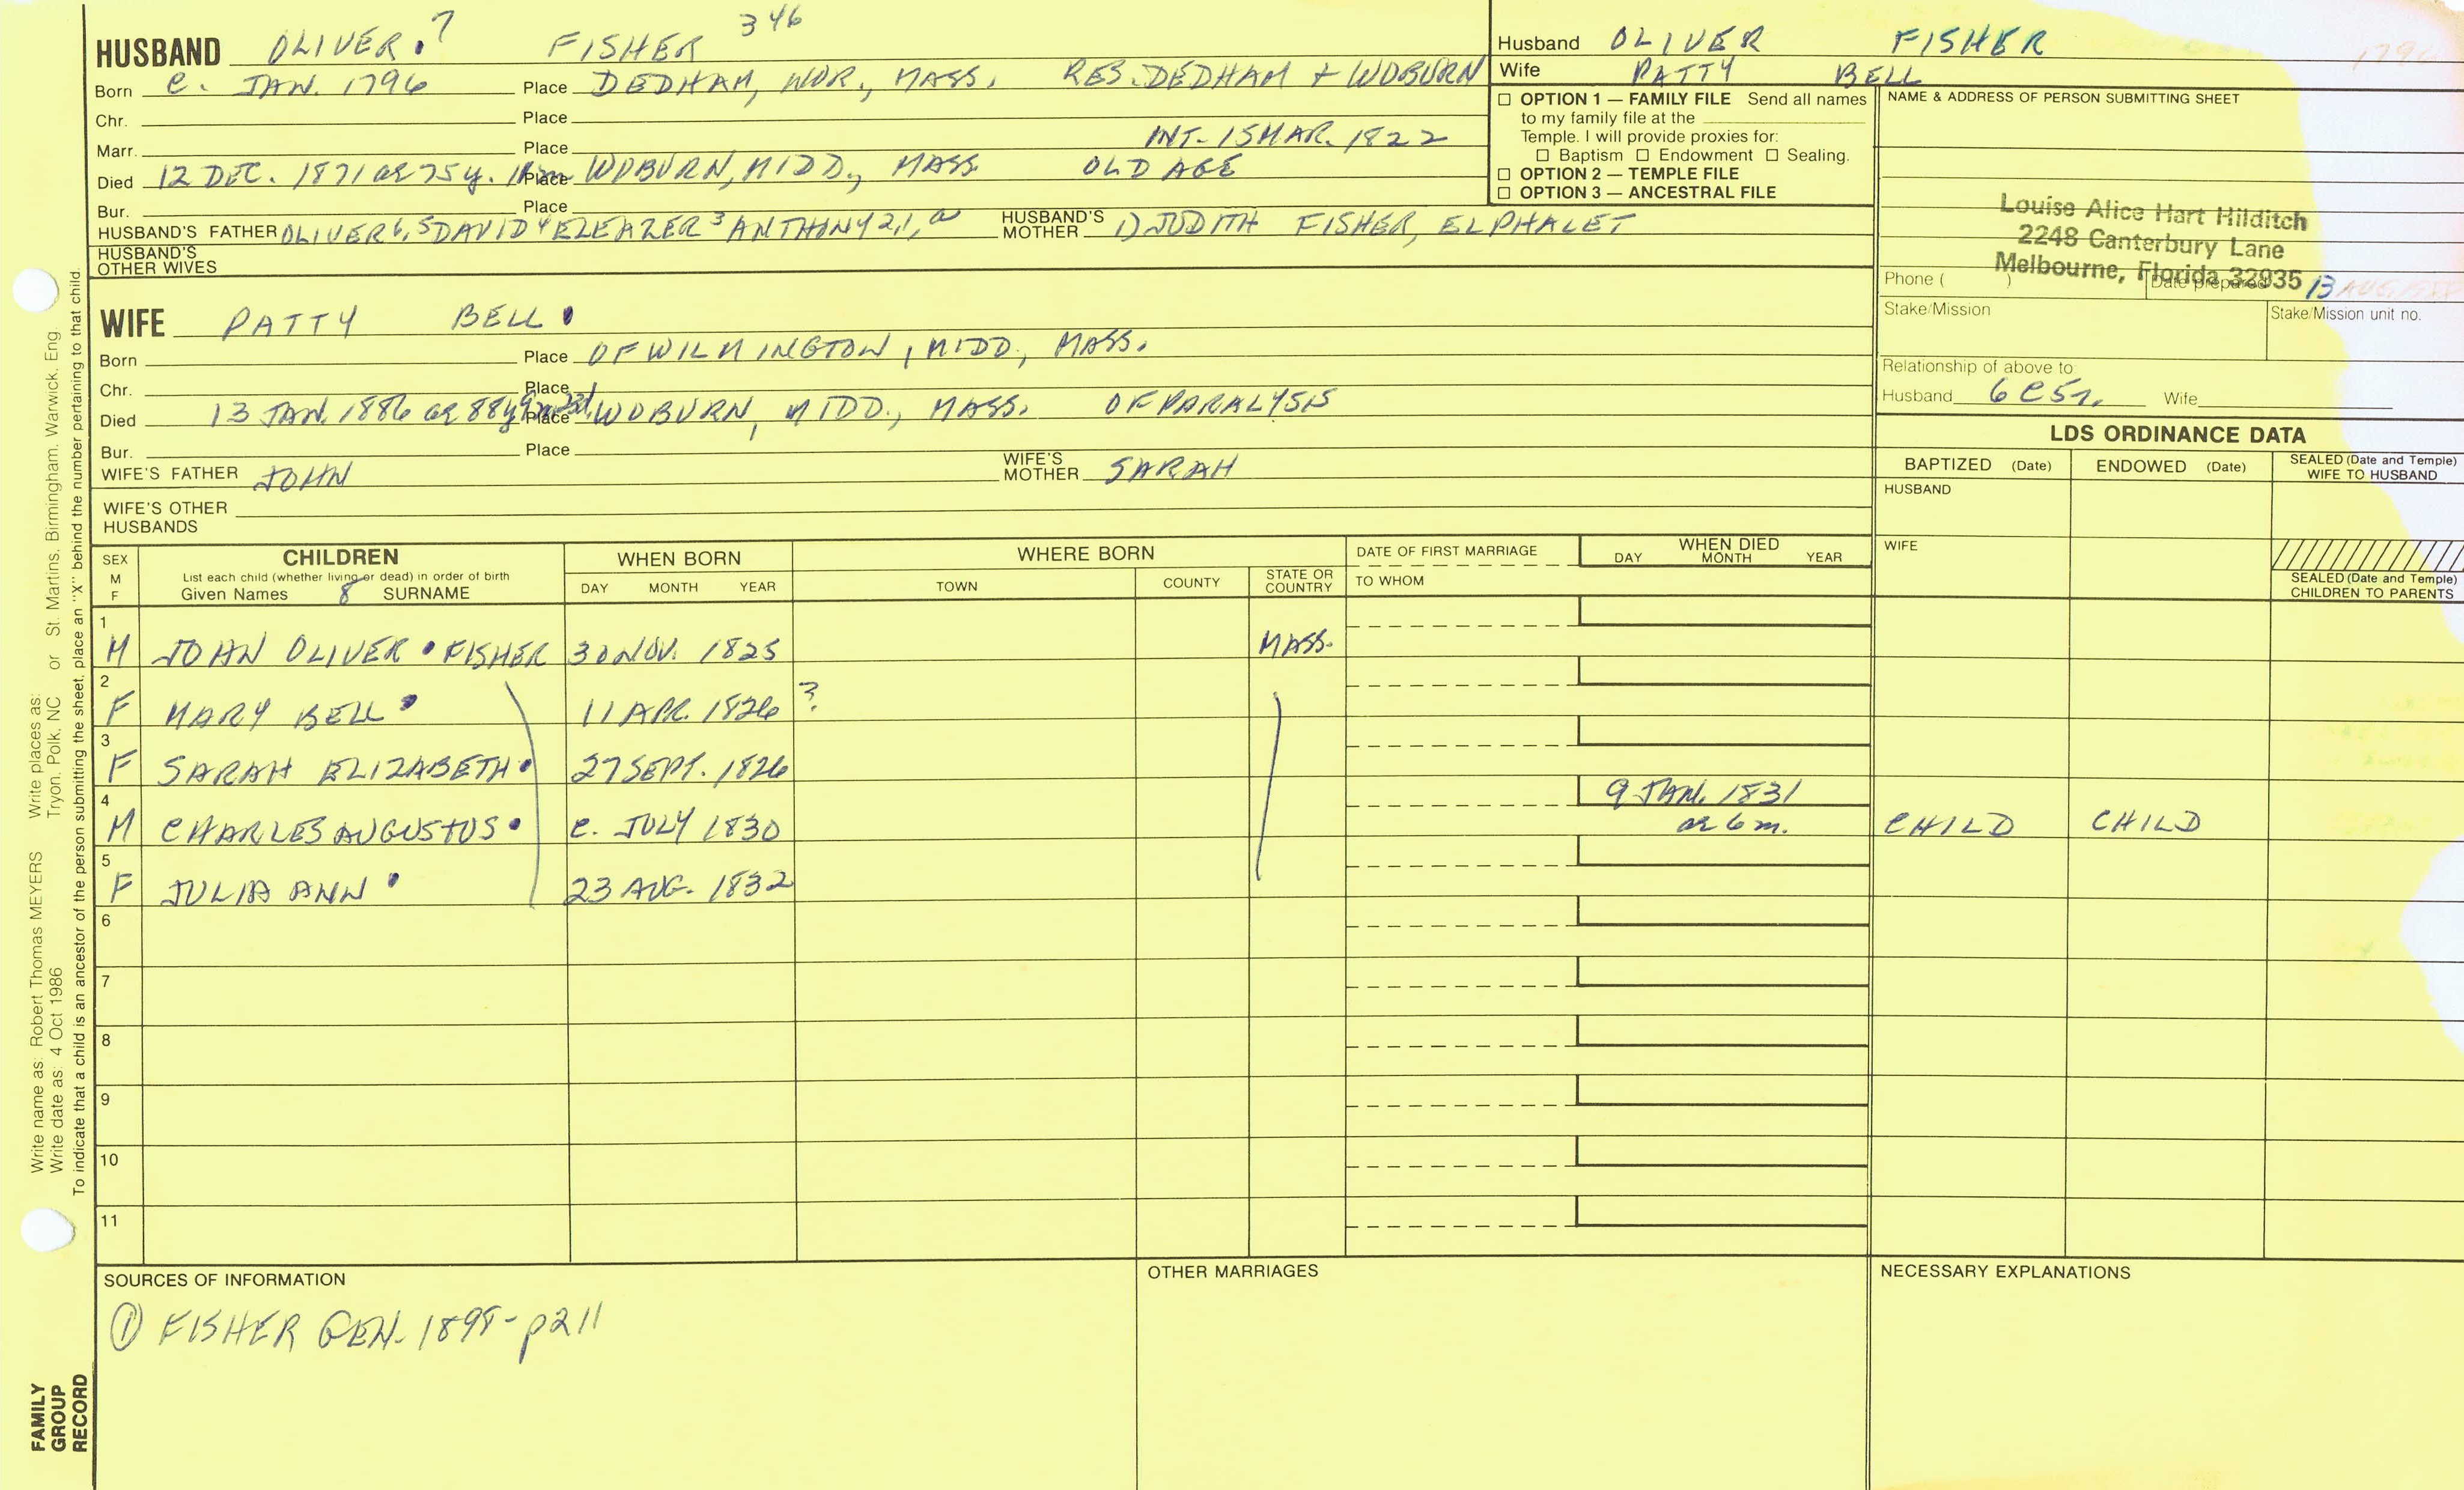 HUSBAND OLIVER.7 FISHER 346
Born C. JAN. 1796 Place DEDHAM, WOR., MASS. RES. DEDHAM + WOBURN
Chr. Place
Marr. Place INT. 15 MAR. 1822
Died 12 DEC. 1871 ae 75 y. Place WOBURN, MIDD., MASS. OLD AGE
Bur. Place
HUSBAND'S FATHER OLIVER 6, 5 DAVID 4 ELEAZER 3 ANTHONY 2,1, a HUSBAND'S MOTHER 1) JUDITH FISHER, ELPHALET
HUSBAND'S OTHER WIVES
WIFE PATTY BELL
Born Place OF WILMINGTON, MIDD., MASS.
Chr. Place
Died 13 JAN. 1886 ae 88y 9m 23d Place WOBURN, MIDD., MASS. OF PARALYSIS
Bur. Place
WIFE'S FATHER JOHN WIFE'S MOTHER SARAH
WIFE'S OTHER HUSBANDS
Husband OLIVER FISHER 1796
Wife PATTY BELL
☐ OPTION 1 — FAMILY FILE Send all names
to my family file at the
Temple. I will provide proxies for:
☐ Baptism ☐ Endowment ☐ Sealing.
☐ OPTION 2 — TEMPLE FILE
☐ OPTION 3 — ANCESTRAL FILE
NAME & ADDRESS OF PERSON SUBMITTING SHEET
Louise Alice Hart Hilditch
2248 Canterbury Lane
Melbourne, Florida 32935
Phone ( ) Date prepared 13 AUG.
Stake/Mission Stake/Mission unit no.
Relationship of above to:
Husband 6C5r. Wife
LDS ORDINANCE DATA
BAPTIZED (Date) ENDOWED (Date) SEALED (Date and Temple) WIFE TO HUSBAND
HUSBAND
WIFE
SEALED (Date and Temple) CHILDREN TO PARENTS
SEX M F CHILDREN WHEN BORN WHERE BORN DATE OF FIRST MARRIAGE WHEN DIED
List each child (whether living or dead) in order of birth
Given Names 8 SURNAME DAY MONTH YEAR TOWN COUNTY STATE OR COUNTRY TO WHOM DAY MONTH YEAR
1 M JOHN OLIVER • FISHER 30 NOV. 1825 MASS.
2 F MARY BELL • 11 APR. 1826 ?
3 F SARAH ELIZABETH • 27 SEPT. 1826
4 M CHARLES AUGUSTUS • C. JULY 1830 9 JAN. 1831 ae 6 m. CHILD CHILD
5 F JULIA ANN • 23 AUG. 1832
6
7
8
9
10
11
SOURCES OF INFORMATION
① FISHER GEN. 1898 - p211
OTHER MARRIAGES
NECESSARY EXPLANATIONS
Write name as: Robert Thomas MEYERS Write places as: St. Martins, Birmingham, Warwick, Eng
Write date as: 4 Oct 1986 Tryon, Polk, NC or
To indicate that a child is an ancestor of the person submitting the sheet, place an "X" behind the number pertaining to that child.
FAMILY
GROUP
RECORD